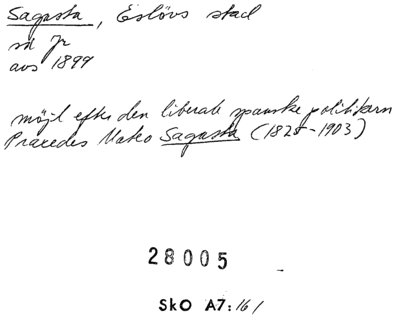 Sagasta, Eslövs stad
sä Jr
avs 1899
möjl efter den liberale spanske politikern
Praxedes Mateo Sagasta (1825-1903)
28005
SkO A7:161